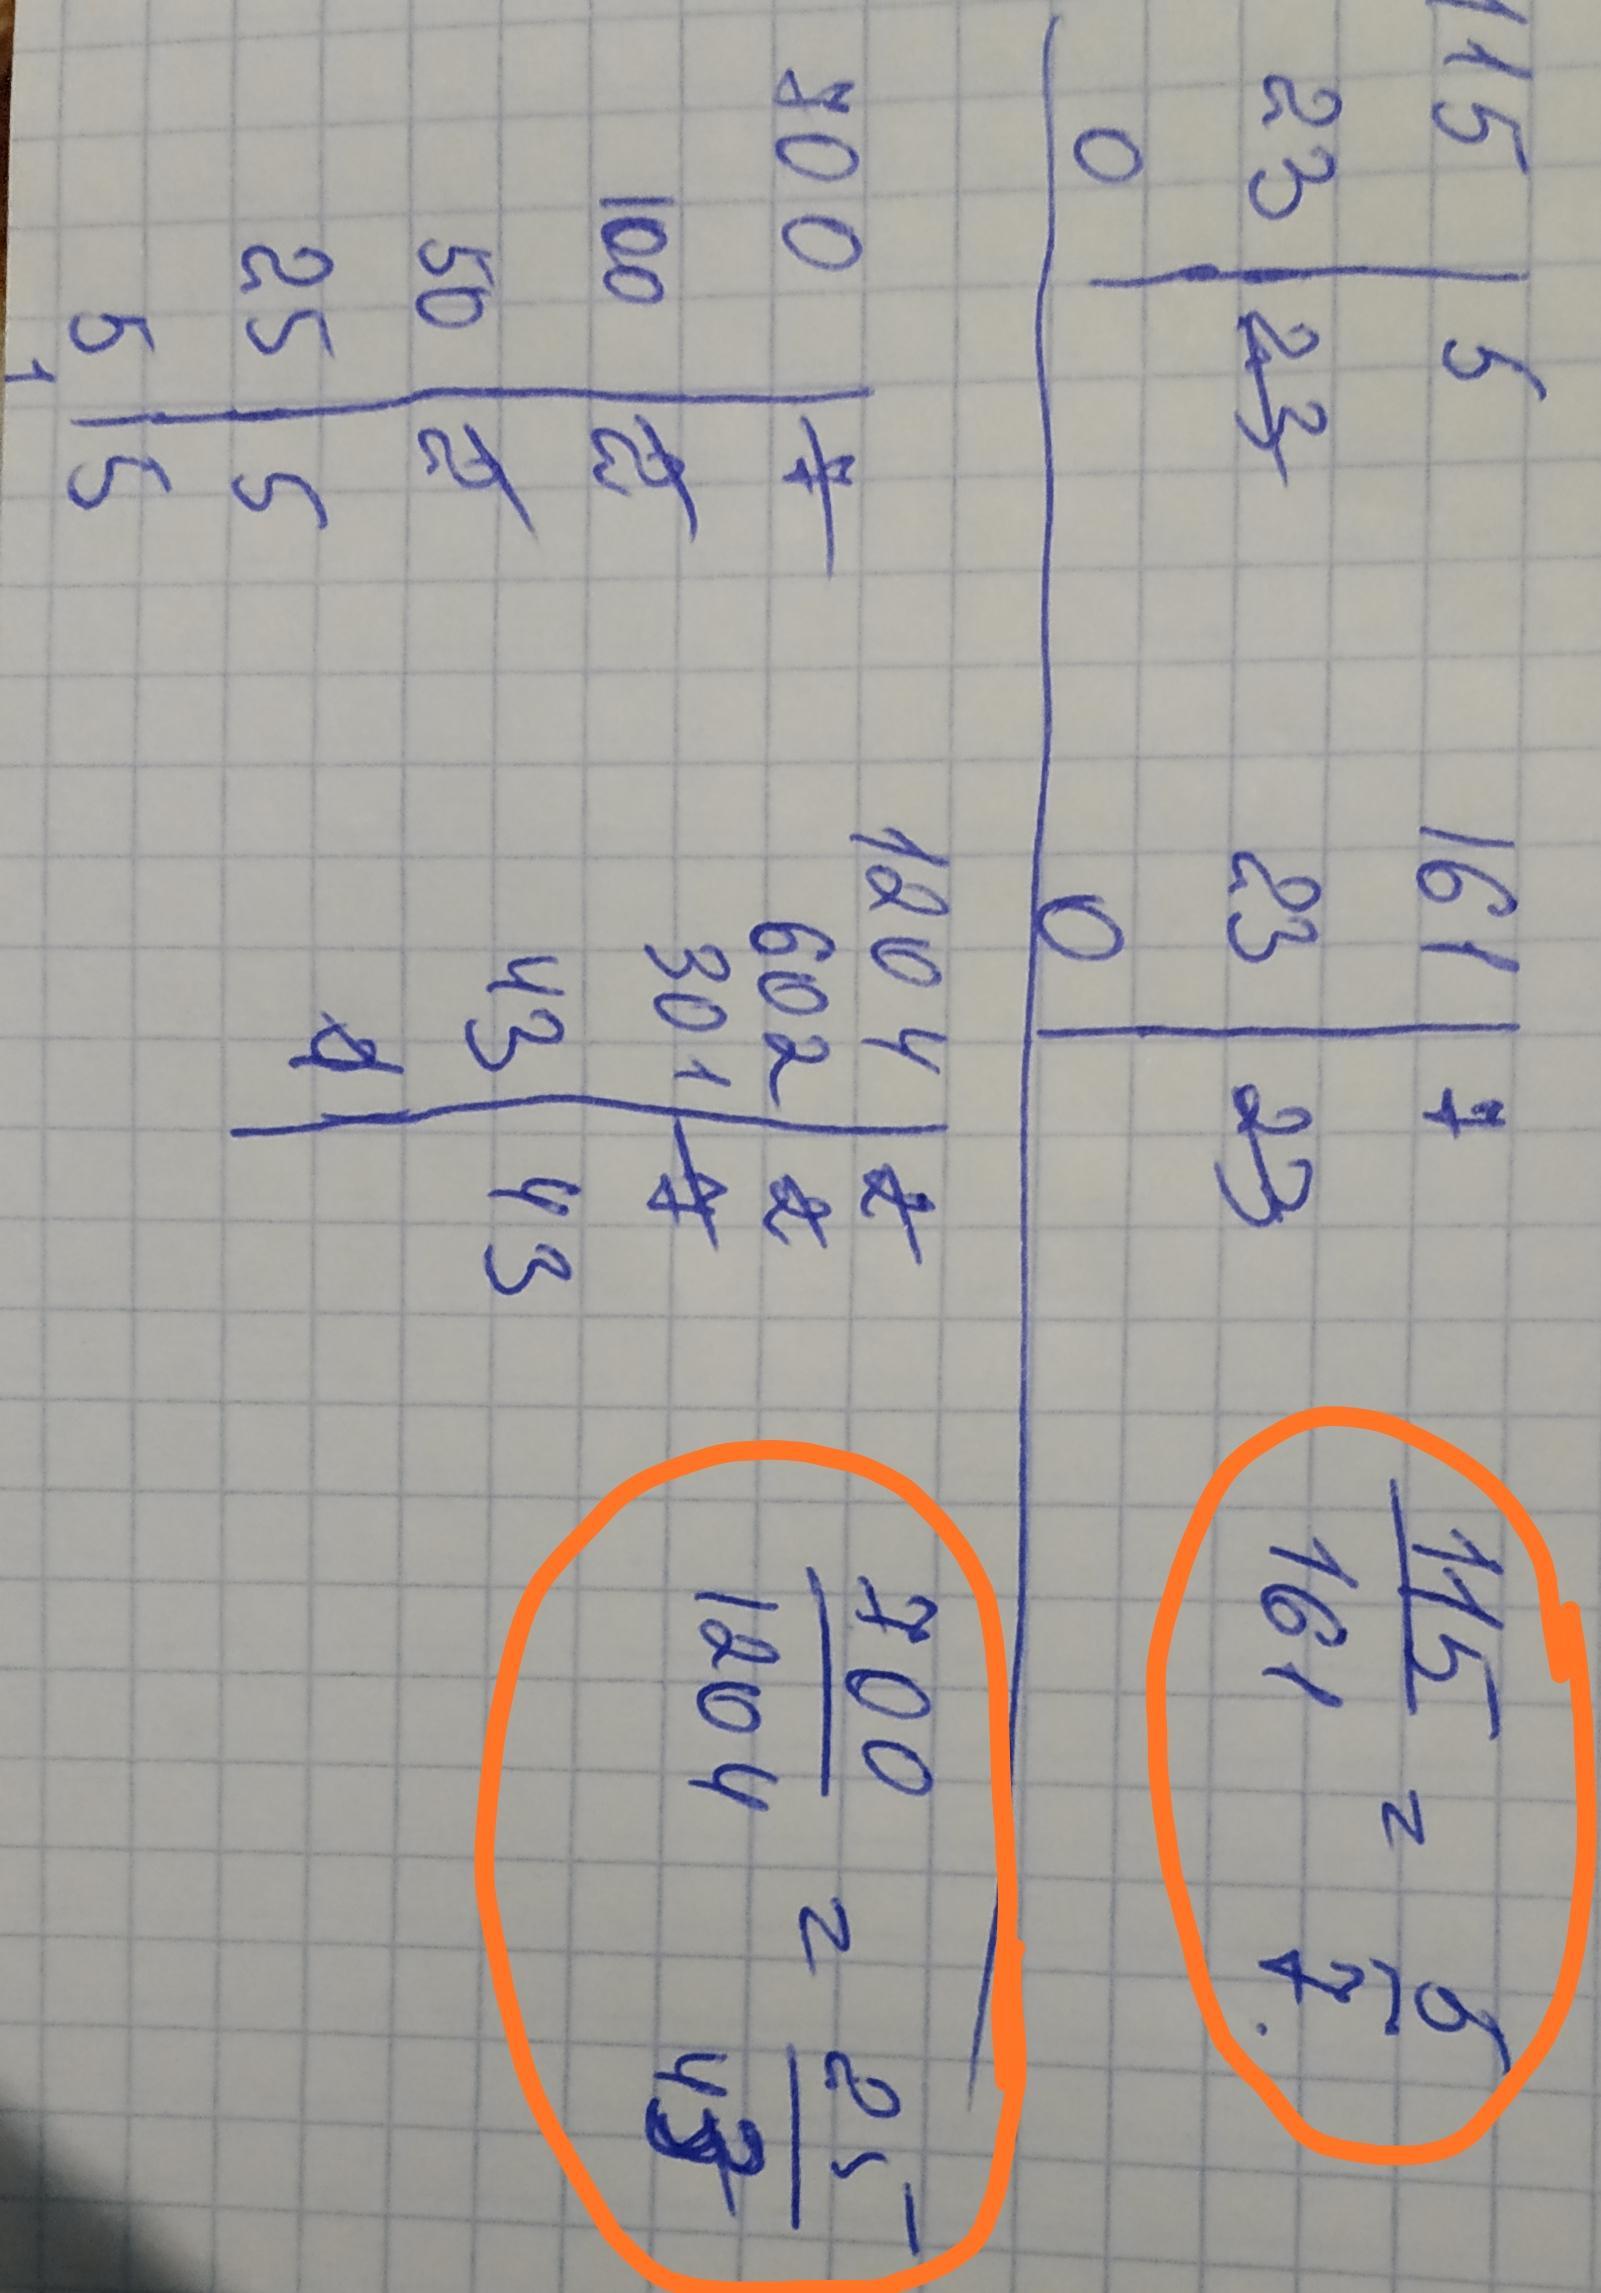 115 | 5
23 | 23
0
161 | 7
23 | 23
0
115
161 = 5
7.
700 | 7
100 | 2
50 | 2
25 | 5
5 | 5
1
1204 | 2
602 | 2
301 | 7
43 | 43
700
1204 = 25
43